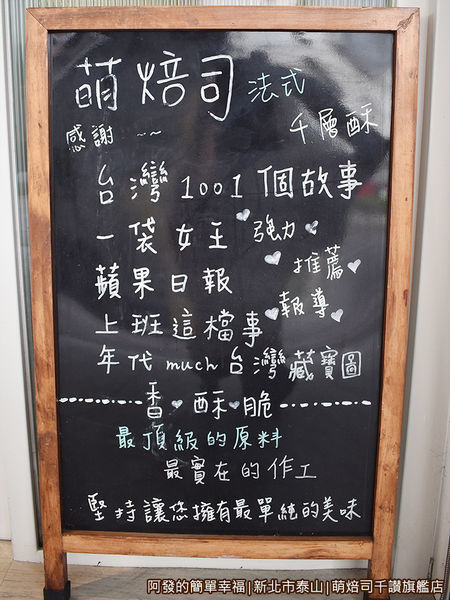 萌焙司 法式
千層酥
感謝~~
台灣1001個故事
一袋女王 強力
推薦
蘋果日報 報導
上班這檔事
年代much台灣藏寶圖
香 酥 脆
最頂級的原料
最實在的作工
堅持讓您擁有最單純的美味
阿發的簡單幸福|新北市泰山|萌焙司千讚旗艦店